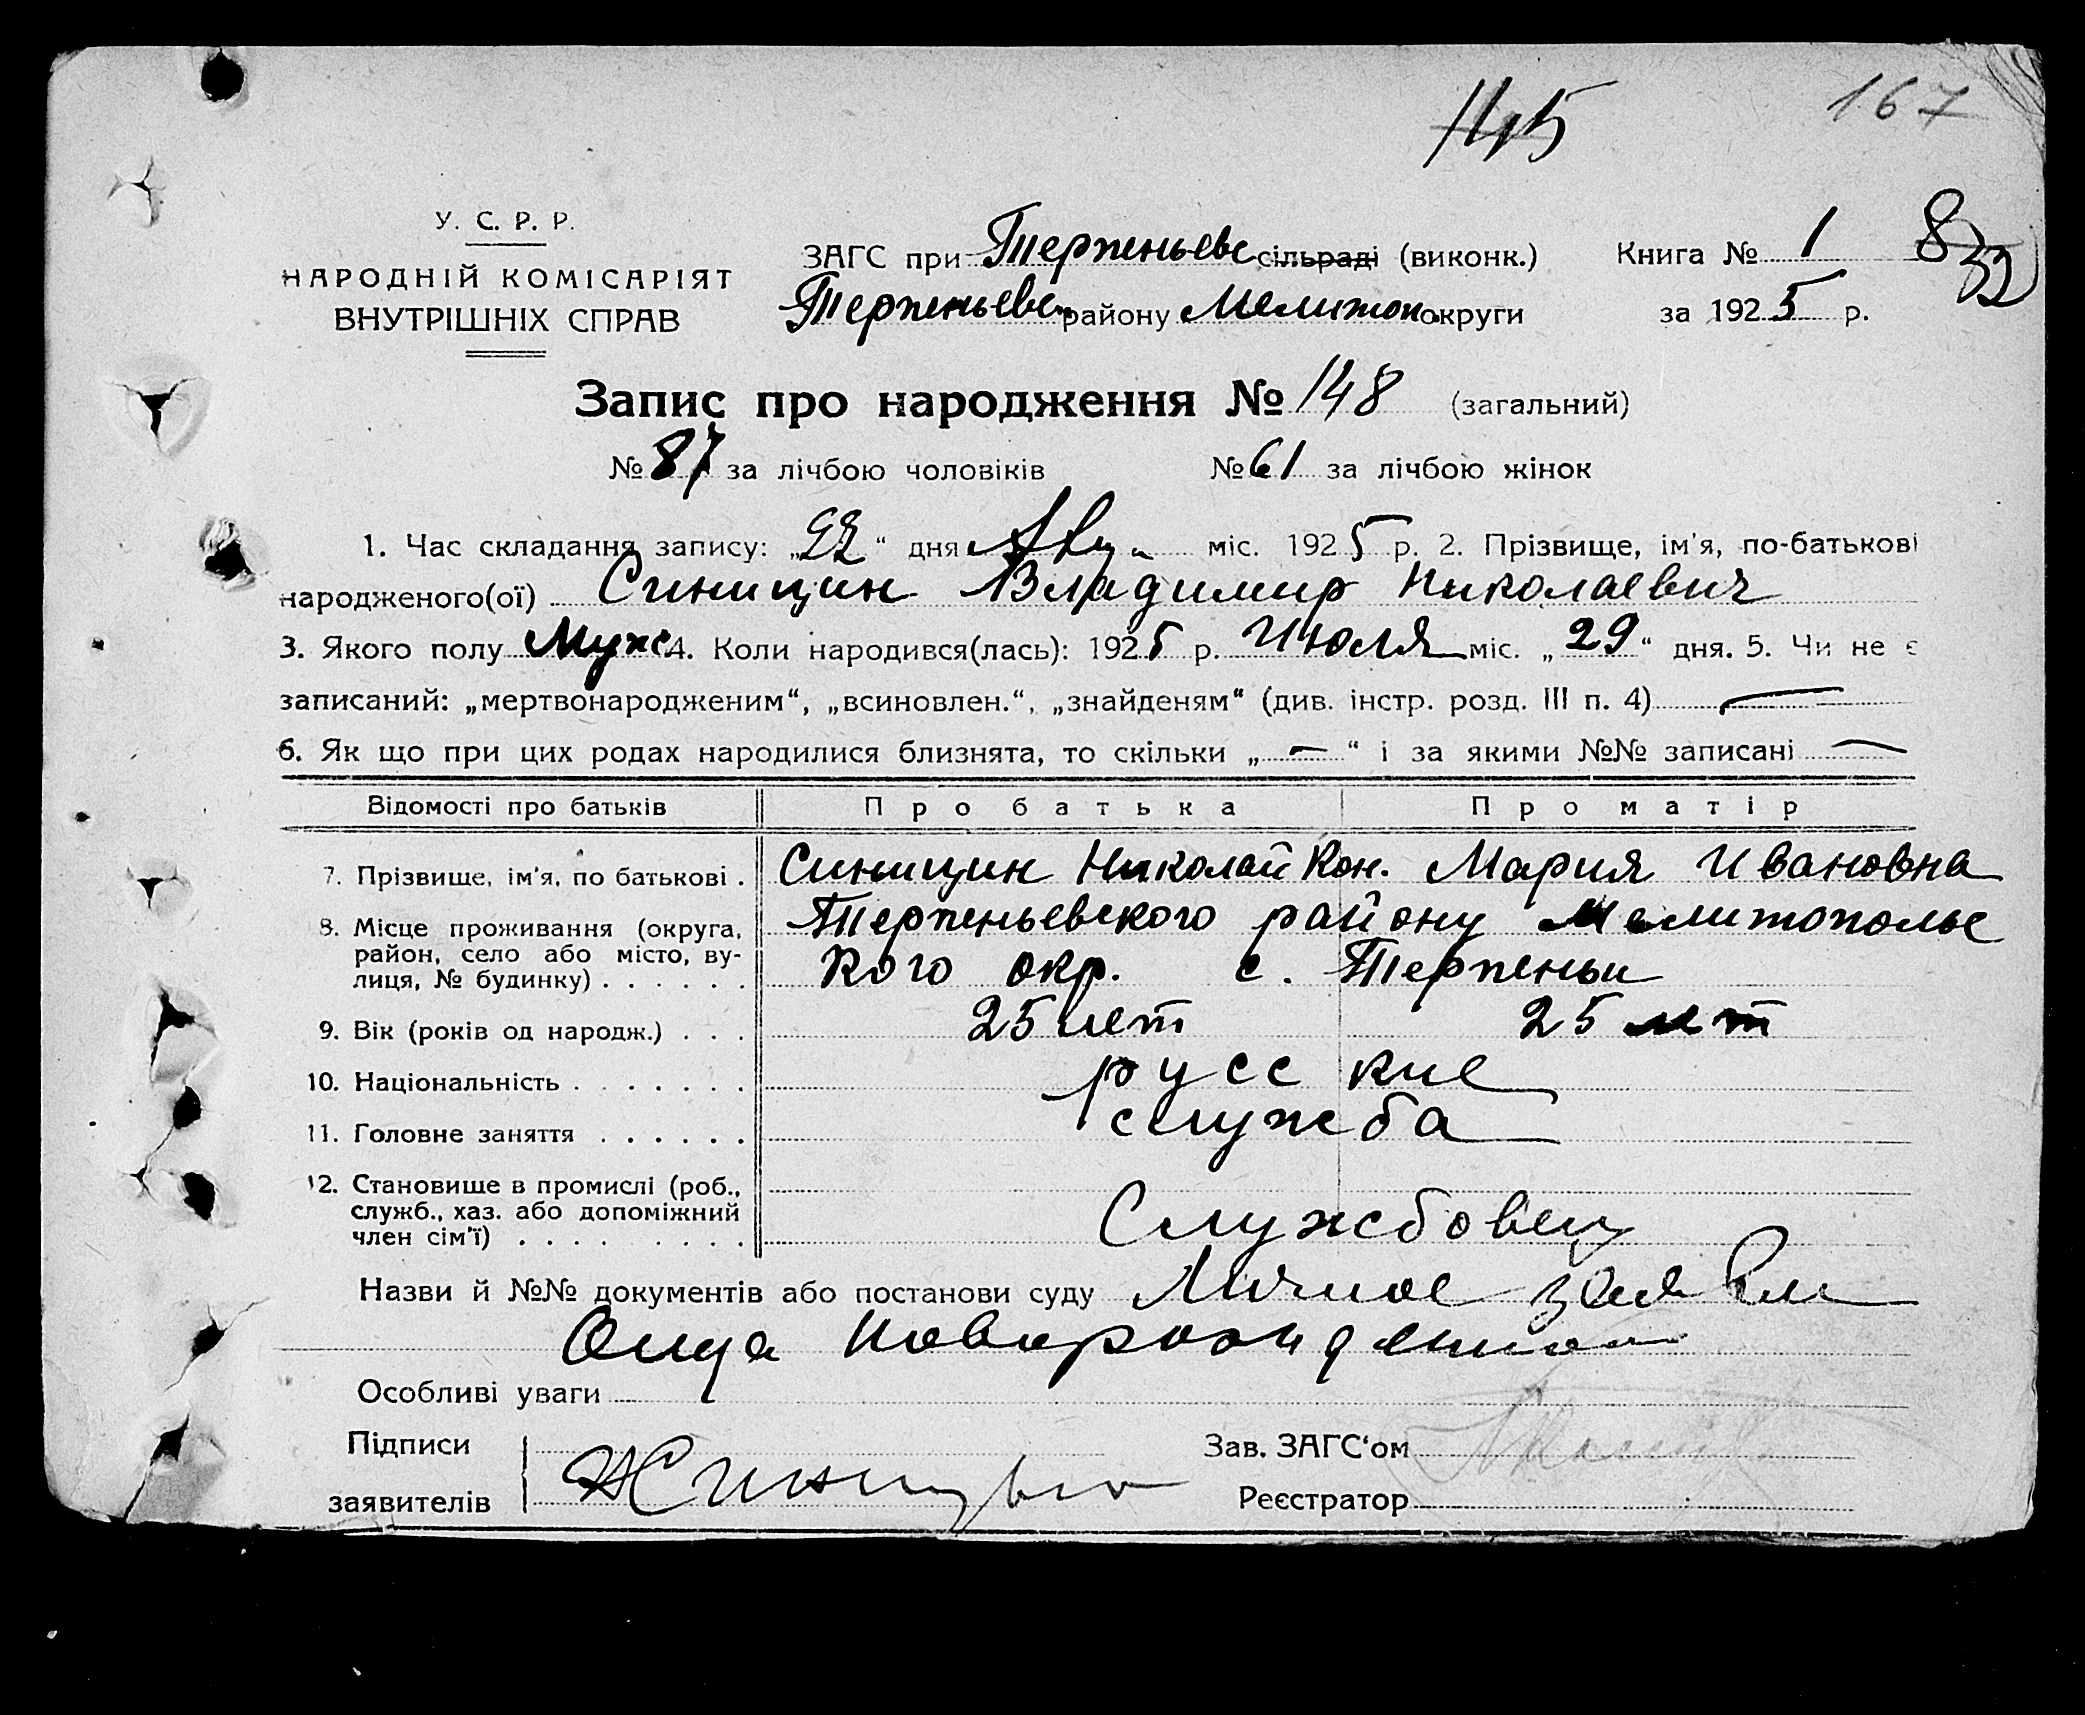 145
167
У. С. Р. Р.
НАРОДНІЙ КОМІСАРІЯТ
ВНУТРІШНІХ СПРАВ
ЗАГС при Терпеньевс сільраді (виконк.) Книга № 1 8
32
Терпеньевс району Мелитоп округи за 1925 р.
Запис про народження № 148 (загальний)
№ 87 за лічбою чоловіків № 61 за лічбою жінок
1. Час складання запису: „22“ дня Авг. міс. 1925 р. 2. Прізвище, ім'я, по-батькові
народженого(ої) Синицин Владимир Николаевич
3. Якого полу Муж 4. Коли народився(лась): 1925 р. Июля міс. „29“ дня. 5. Чи не є
записаний: „мертвонародженим“, „всиновлен.“, „знайденям“ (див. інстр. розд. III п. 4) —
6. Як що при цих родах народилися близнята, то скільки „—“ і за якими №№ записані —
Відомості про батьків Про батька Про матір
7. Прізвище, ім'я, по батькові . Синицин Николай Кон. Мария Ивановна
8. Місце проживання (округа, район, село або місто, вулиця, № будинку) . . . . . . Терпеньевского району Мелитопольс
кого окр. с. Терпеньи
9. Вік (років од народж.) . . . 25 лет 25 лет
10. Національність . . . . . . . русские
11. Головне заняття . . . . . . служба
12. Становище в промислі (роб.,
служб., хаз. або допоміжний
член сім'ї) . . . . . . . . Службовец
Назви й №№ документів або постанови суду Личное заявл
Отца
Особливі уваги
Підписи Зав. ЗАГС'ом
заявителів Реєстратор